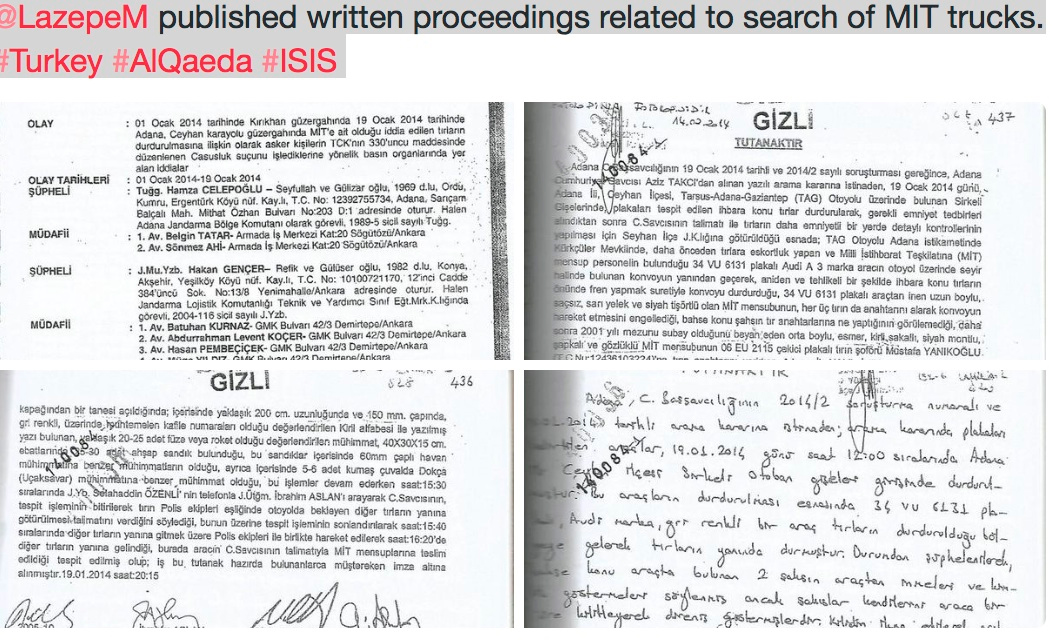 @LazepeM published written proceedings related to search of MIT trucks.
#Turkey #AlQaeda #ISIS
OLAY : 01 Ocak 2014 tarihinde Kırıkhan güzergahında 19 Ocak 2014 tarihinde
Adana, Ceyhan karayolu güzergahında MİT'e ait olduğu iddia edilen tırların
durdurulmasına ilişkin olarak asker kişilerin TCK'nın 330'uncu maddesinde
düzenlenen Casusluk suçunu işlediklerine yönelik basın organlarında yer
alan iddialar
OLAY TARİHLERİ : 01 Ocak 2014-19 Ocak 2014
ŞÜPHELİ : Tuğg. Hamza CELEPOĞLU – Seyfullah ve Gülizar oğlu, 1969 d.lu, Ordu,
Kumru, Ergentürk Köyü nüf. Kay.lı, T.C. No: 12392755734, Adana, Sarıçam
Balçalı Mah. Mithat Özhan Bulvarı No:203 D:1 adresinde oturur. Halen
Adana Jandarma Bölge Komutanı olarak görevli, 1989-5 sicil sayılı Tuğg.
MÜDAFİİ : 1. Av. Belgin TATAR- Armada İş Merkezi Kat:20 Söğütözü/Ankara
2. Av. Sönmez AHİ- Armada İş Merkezi Kat:20 Söğütözü/Ankara
ŞÜPHELİ : J.Mu.Yzb. Hakan GENÇER– Refik ve Gülüser oğlu, 1982 d.lu, Konya,
Akşehir, Yeşilköy Köyü nüf. Kay.lı, T.C. No: 10100721170, 12'inci Cadde
384'üncü Sok. No:13/8 Yenimahalle/Ankara adresinde oturur. Halen
Jandarma Lojistik Komutanlığı Teknik ve Yardımcı Sınıf Eğt.Mrk.K.lığında
görevli, 2004-116 sicil sayılı J.Yzb.
MÜDAFİİ : 1. Av. Batuhan KURNAZ- GMK Bulvarı 42/3 Demirtepe/Ankara
2. Av. Abdurrehman Levent KOÇER- GMK Bulvarı 42/3 Demirtepe/Ankara
3. Av. Hasan PEMBEÇİÇEK- GMK Bulvarı 42/3 Demirtepe/Ankara
GİZLİ
437
14.02.2014
TUTANAKTIR
140084
Adana C.Başsavcılığının 19 Ocak 2014 tarihli ve 2014/2 sayılı soruşturması gereğince, Adana
Cumhuriyet Savcısı Aziz TAKCI'dan alınan yazılı arama kararına istinaden, 19 Ocak 2014 günü,
Adana İli, Ceyhan İlçesi, Tarsus-Adana-Gaziantep (TAG) Otoyolu üzerinde bulunan Sirkeli
Gişelerinde, plakaları tespit edilen ihbara konu tırlar durdurularak, gerekli emniyet tedbirleri
alındıktan sonra C.Savcısının talimatı ile tırların daha emniyetli bir yerde detaylı kontrollerinin
yapılması için Seyhan İlçe J.K.lığına götürüldüğü esnada; TAG Otoyolu Adana istikametinde
Kürkçüler Mevkiinde, daha önceden tırlara eskortluk yapan ve Milli İstihbarat Teşkilatına (MİT)
mensup personelin bulunduğu 34 VU 6131 plakalı Audi A 3 marka aracın otoyol üzerinde seyir
halinde bulunan konvoyun yanından geçerek, aniden ve tehlikeli bir şekilde ihbara konu tırların
önünde fren yapmak suretiyle konvoyu durdurduğu, 34 VU 6131 plakalı araçtan inen uzun boylu,
saçsız, sarı yelek ve siyah tişörtlü olan MİT mensubunun, her üç tırın da anahtarını alarak konvoyun
hareket etmesini engellediği, bahse konu şahsın tır anahtarlarına ne yaptığının görülemediği, daha
sonra 2001 yılı mezunu subay olduğunu beyan eden orta boylu, esmer, kirli sakallı, siyah montlu,
şapkalı ve gözlüklü MİT mensubunun 06 EU 2115 çekici plakalı tırın şoförü Mustafa YANIKOĞLU
GİZLİ
436
kapağından bir tanesi açıldığında; içerisinde yaklaşık 200 cm. uzunluğunda ve 150 mm. çapında,
gri renkli, üzerinde muhtemelen kafile numaraları olduğu değerlendirilen Kiril alfabesi ile yazılmış
yazı bulunan, yaklaşık 20-25 adet füze veya roket olduğu değerlendirilen mühimmat, 40X30X15 cm.
ebatlarında 25-30 adet ahşap sandık bulunduğu, bu sandıklar içerisinde 60mm çaplı havan
mühimmatına benzer mühimmatların olduğu, ayrıca içerisinde 5-6 adet kumaş çuvalda Dokça
(Uçaksavar) mühimmatına benzer mühimmat olduğu, bu işlemler devam ederken saat:15:30
sıralarında J.Yb. Selahaddin ÖZENLİ'nin telefonla J.Üğm. İbrahim ASLAN'ı arayarak C.Savcısının,
tespit işleminin bitirilerek tırın Polis ekipleri eşliğinde otoyolda bekleyen diğer tırların yanına
götürülmesi talimatını verdiğini söylediği, bunun üzerine tespit işleminin sonlandırılarak saat:15:40
sıralarında diğer tırların yanına gitmek üzere Polis ekipleri ile birlikte hareket edilerek saat:16:20'de
diğer tırların yanına gelindiği, burada aracın C.Savcısının talimatıyla MİT mensuplarına teslim
edildiği tespit edilmiş olup; iş bu, tutanak hazırda bulunanlarca müştereken imza altına
alınmıştır.19.01.2014 saat:20:15
140084
Adana, C. Başsavcılığının 2014/2 soruşturma numaralı ve
tarihli arama kararına istinaden; arama kararında plakaları
araçlar, 19.01.2014 günü saat 12:00 sıralarında Adana
Ceyhan ilçesi Sirkeli Otoban gişeler girişinde durdurul-
muştur. Bu araçların durdurulması esnasında 34 VU 6131 pla-
Audi marka, gri renkli bir araç tırların durdurulduğu böl-
geye gelerek tırların yanında durmuştur. Durumdan şüphelenilerek,
konu araçta bulunan 2 şahsın araçtan inmeleri ve kim-
göstermeleri söylenmiş ancak şahıslar kendilerini araca bir
kilitleyerek direnç göstermişlerdir.